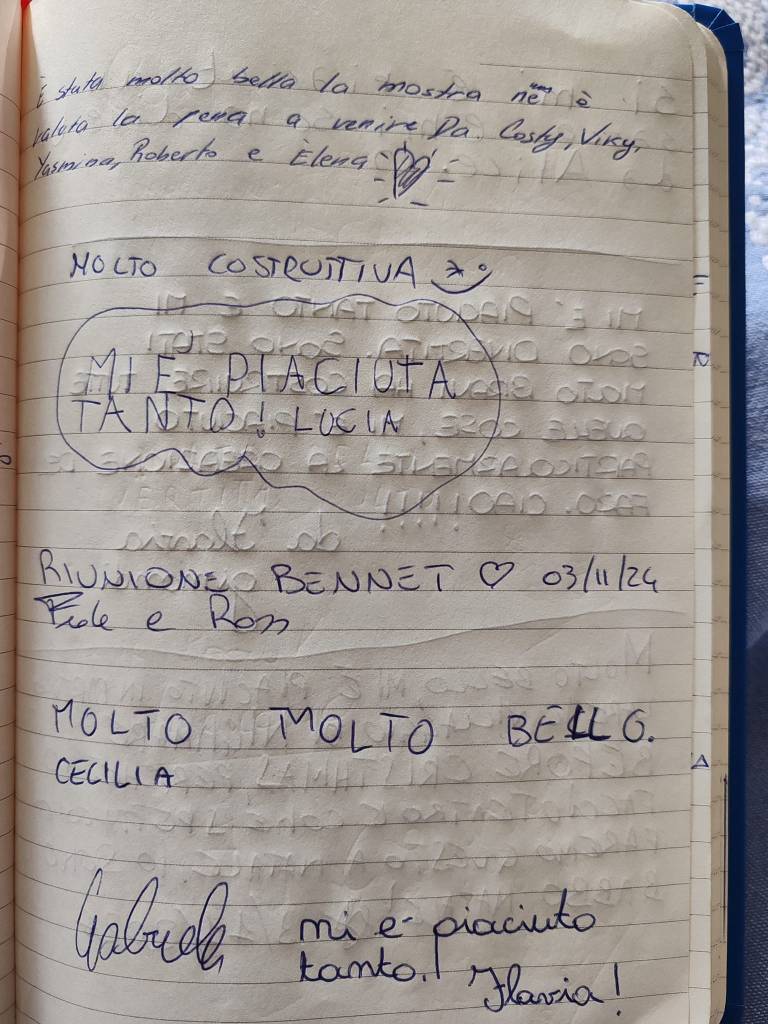 È stata molto bella la mostra ne è
valuta la pena a venire Da Costy, Viky,
Yasmina, Roberto e Elena
MOLTO COSTRUTTIVA
MI È PIACIUTA
TANTO! LUCIA
RIUNIONE BENNET ♡ 03/11/24
Fede e Ross
MOLTO MOLTO BELLO.
CECILIA
Gabriele
mi e piaciuto
tanto.
Flavia!